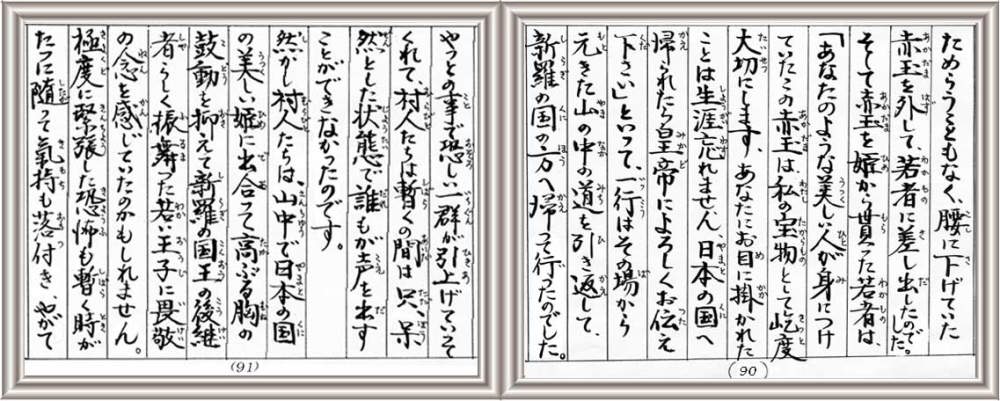 ためらうこともなく、腰に下げていた
赤玉を外して、若者に差し出したのでした。
そして赤玉を姫から貰った若者は、
「あなたのような美しい人が身につけ
ていたこの赤玉は、私の宝物として屹度
大切にします。あなたにお目に掛かれた
ことは生涯忘れません、日本の国へ
帰られたら皇帝によろしくお伝え
下さい」といって、一行はその場から
元きた山の中の道を引き返して、
新羅の国の方へ帰って行ったのでした。
(90)
やっとの事で恐しい一群が引上げていって
くれて、村人たちは暫くの間は只、呆
然とした状態で誰もが声を出す
ことができなかったのです。
然かし村人たちは、山中で日本の国
の美しい姫に出合って高ぶる胸の
鼓動を抑えて新羅の国王の後継
者らしく振舞った若い王子に畏敬
の念を感じていたのかもしれません。
極度に緊張した恐怖も暫く時が
たつに随って氣持も落付き、やがて
(91)